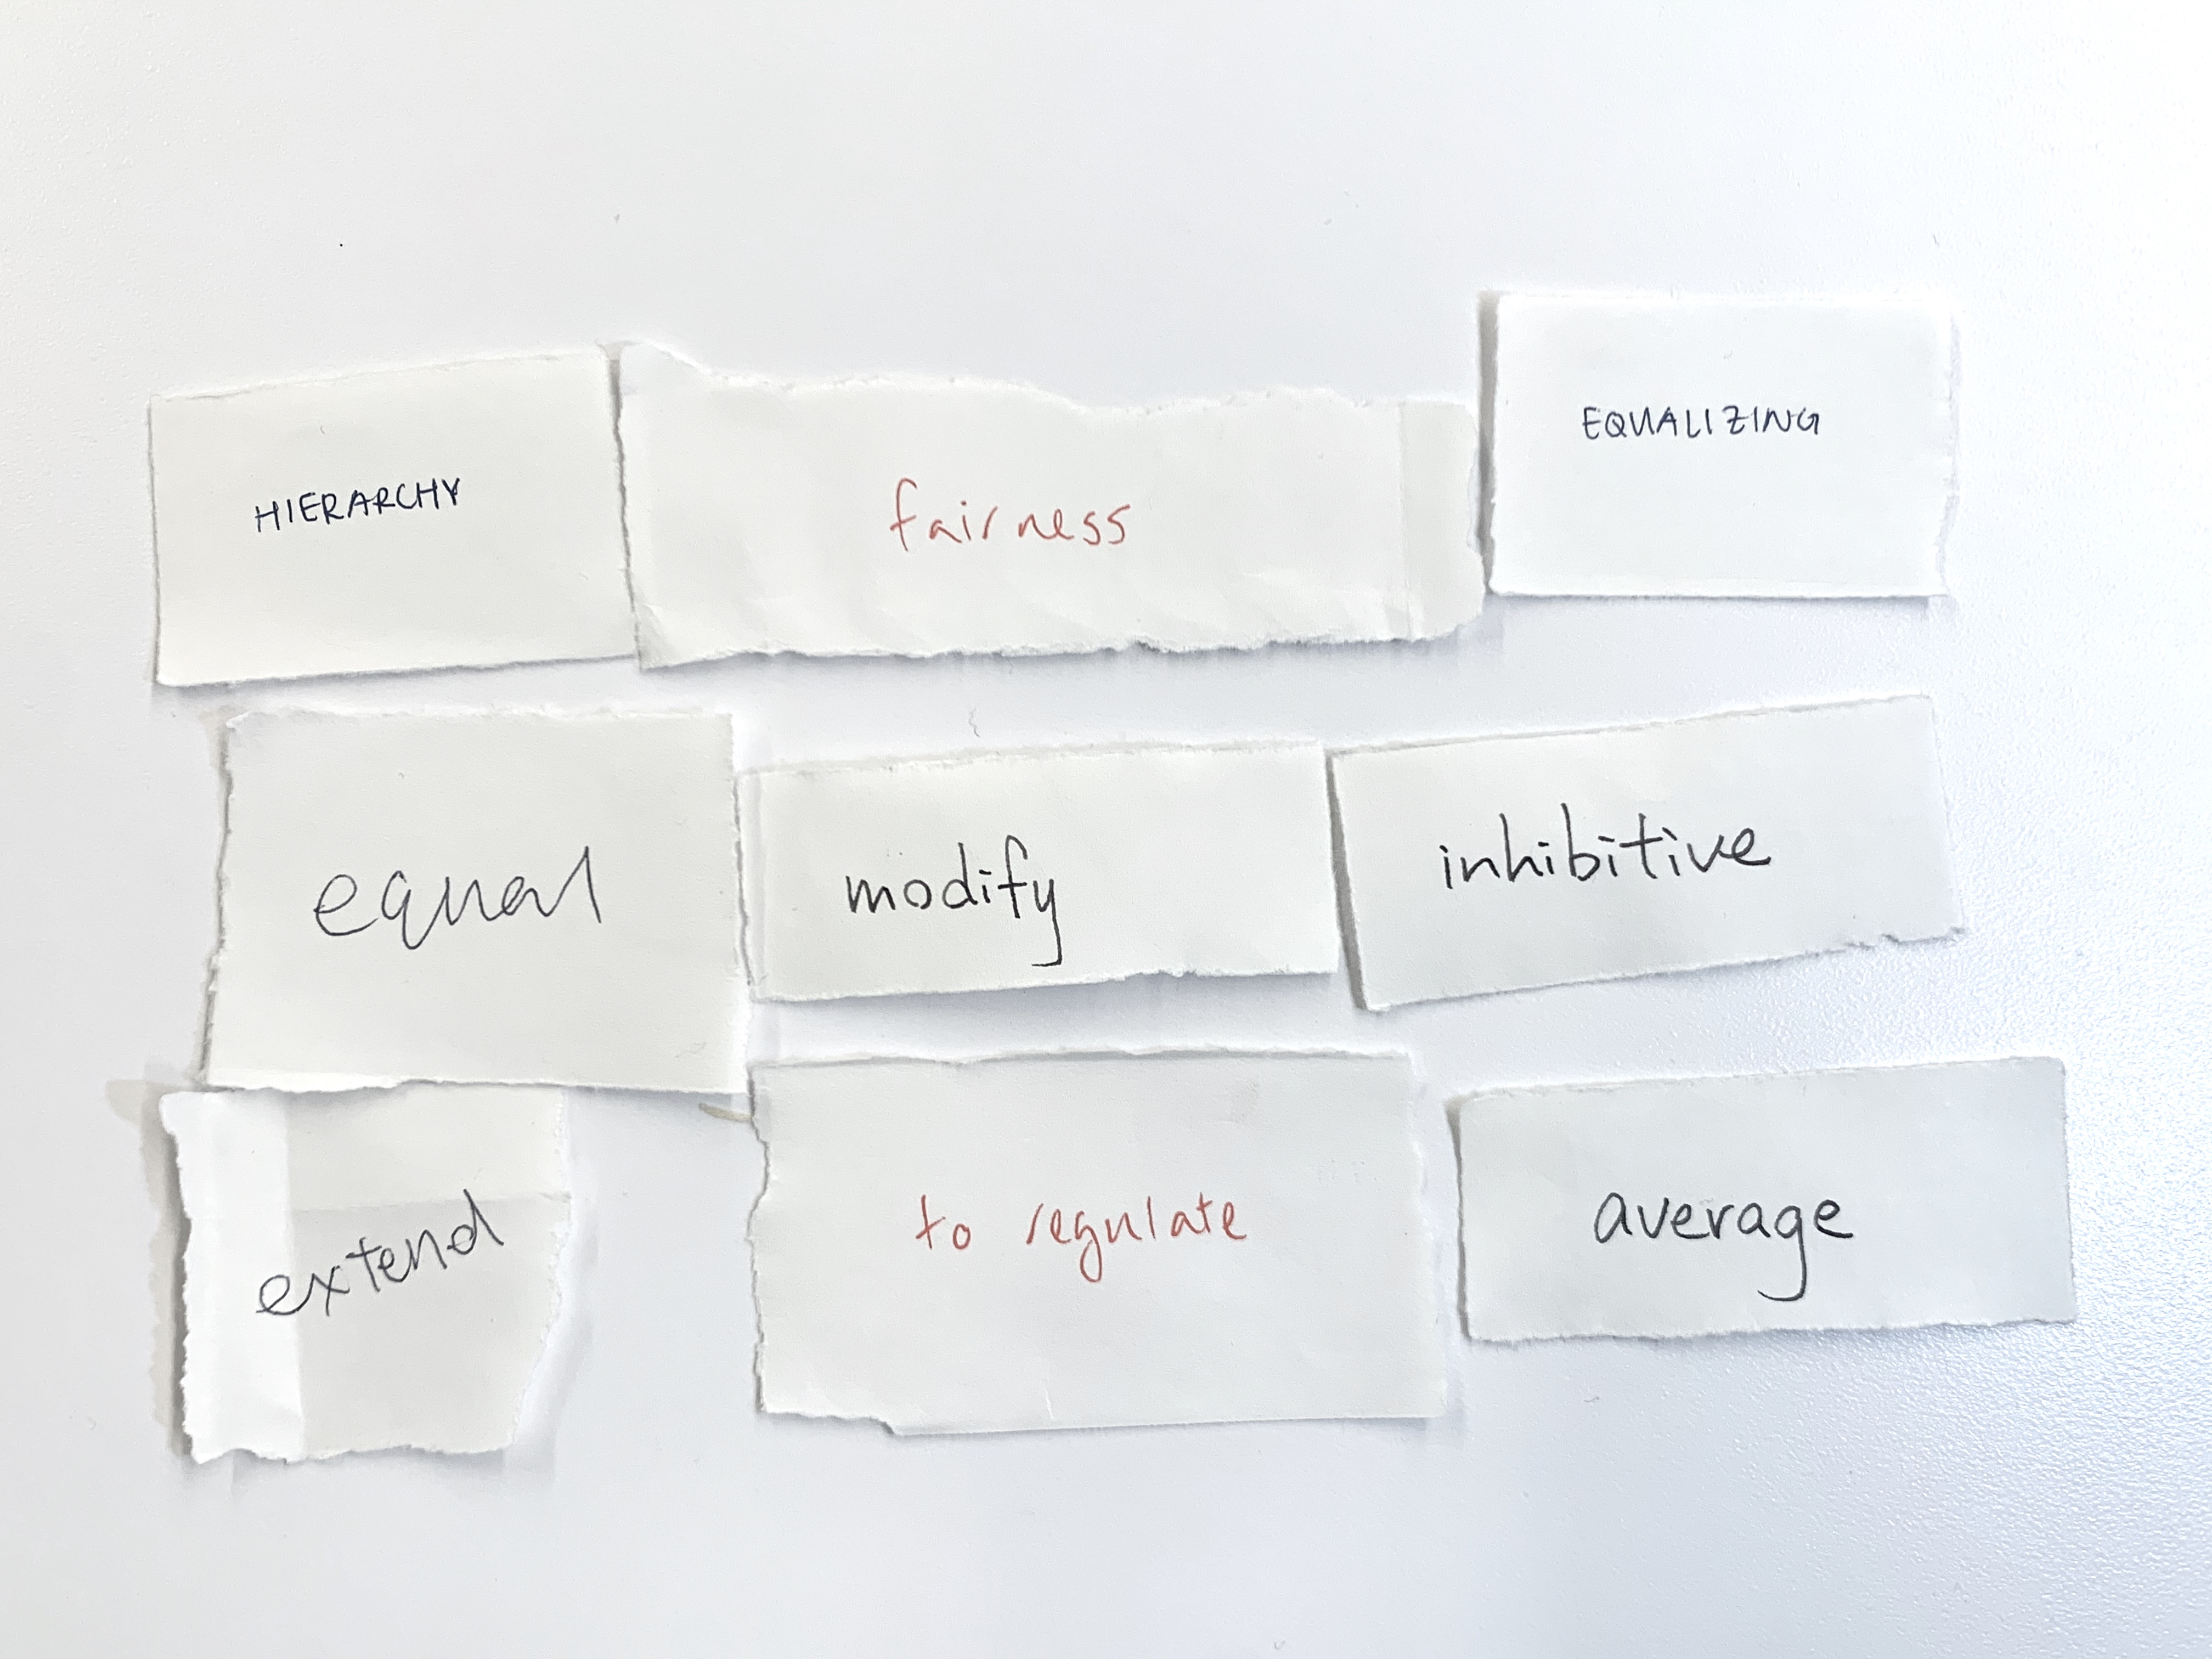 HIERARCHY
fairness
EQUALIZING
equal
modify
inhibitive
extend
to regulate
average